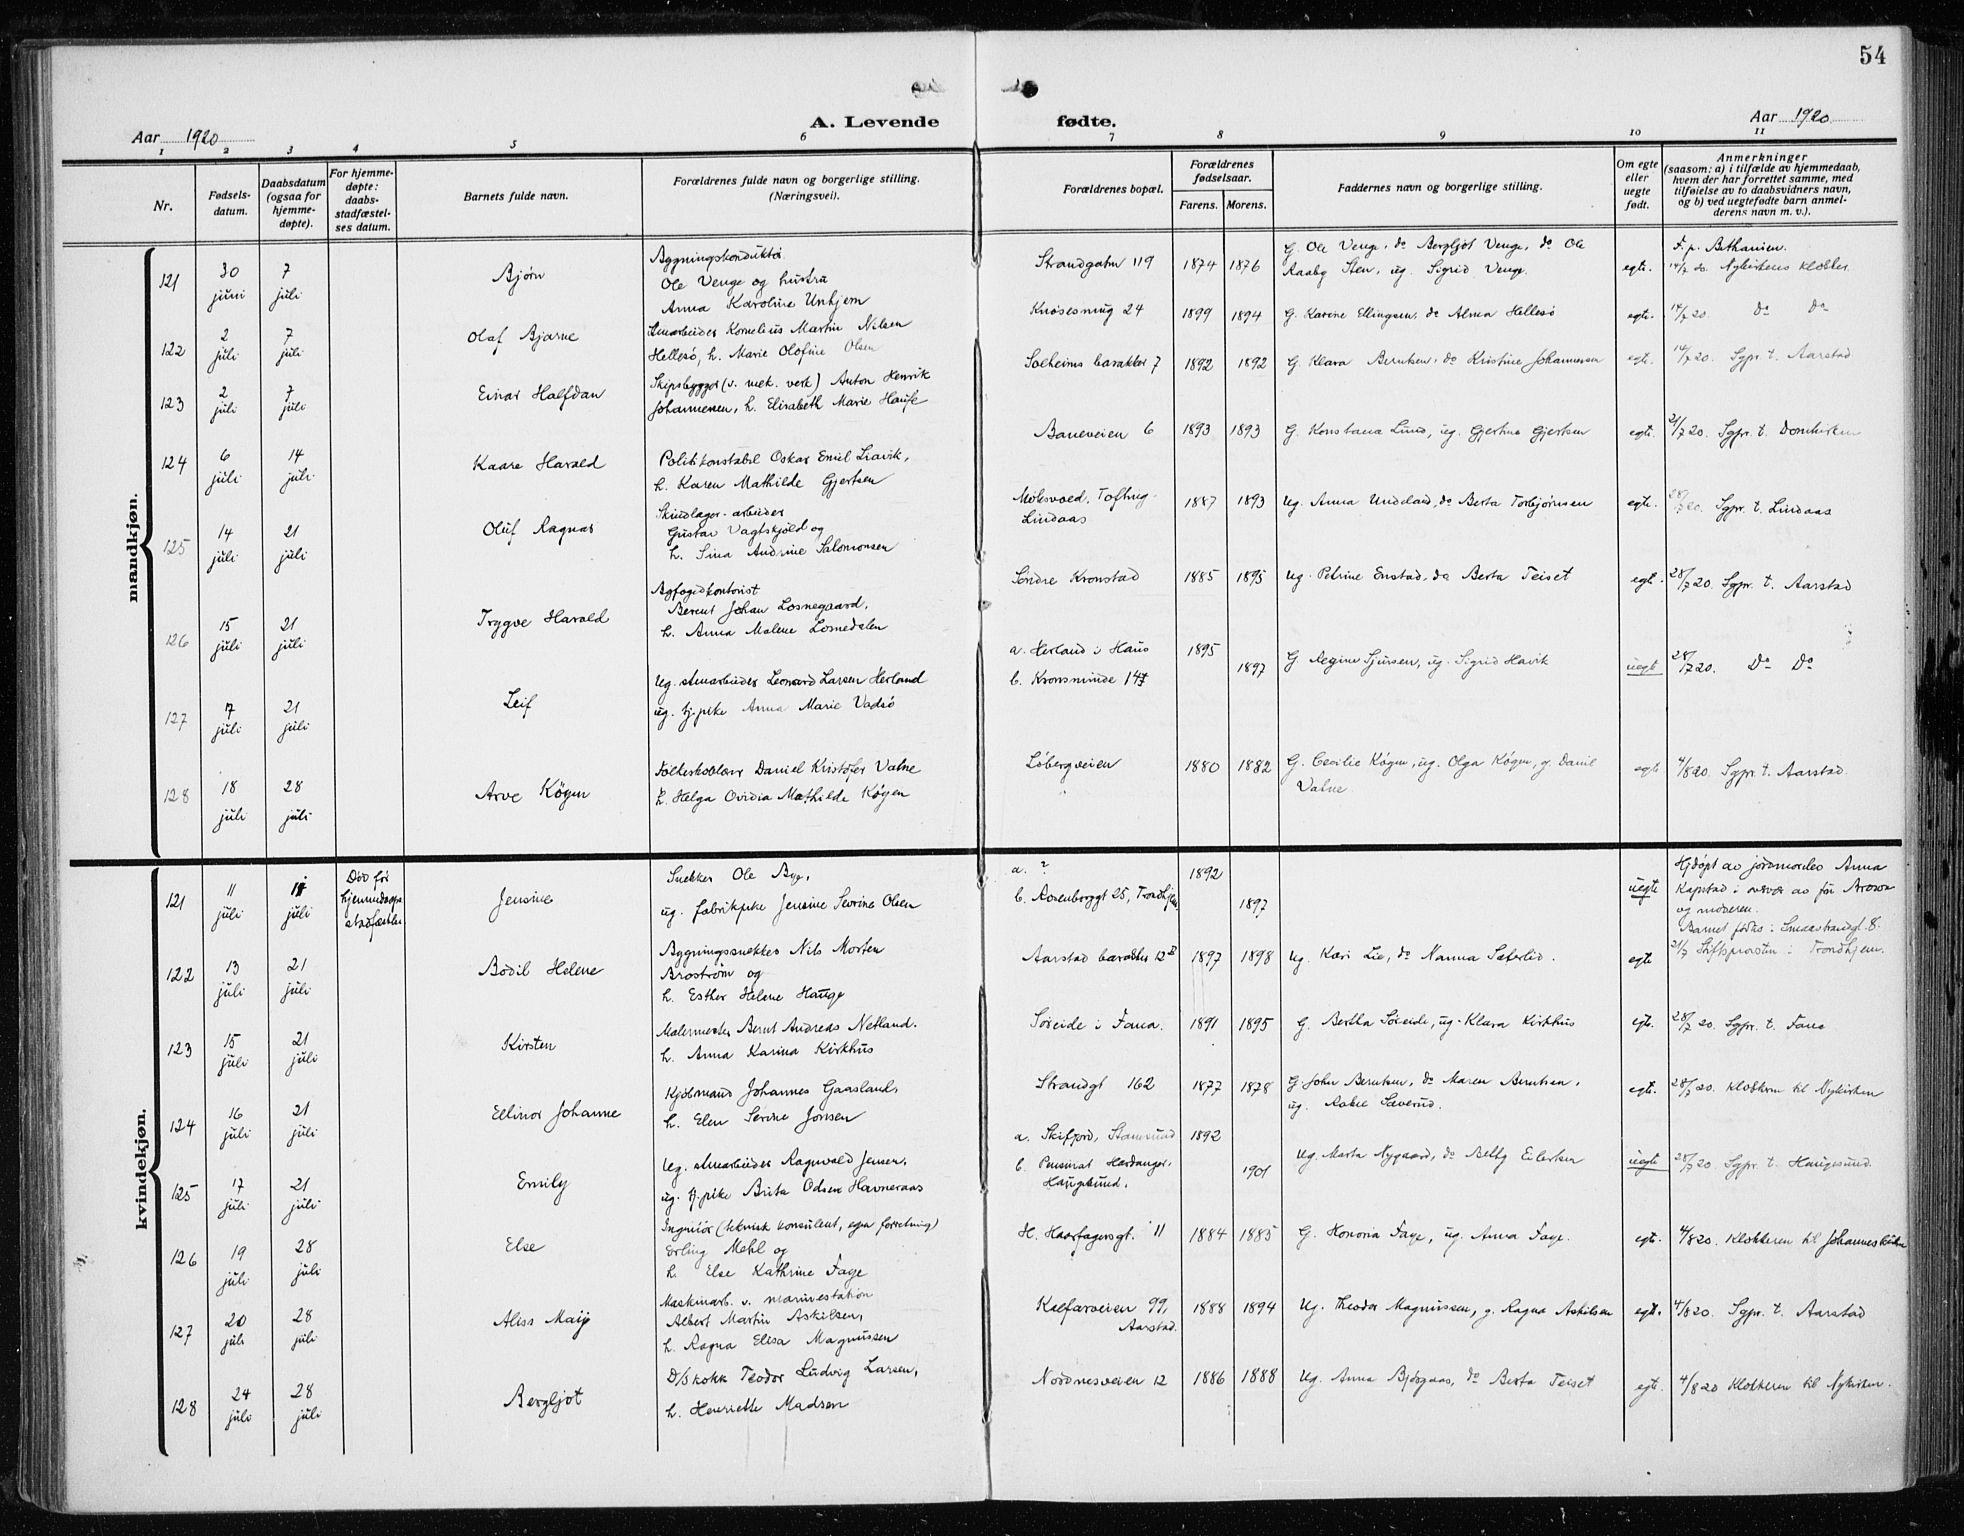 54
A. Levende fødte.
Aar 1920
Aar 1920
1 2 3 4 5 6 7 8 9 10 11
Nr.
Fødsels-
datum.
Daabsdatum
(ogsaa for
hjemme-
døpte).
For hjemme-
døpte:
daabs-
stadfæstel-
ses datum.
Barnets fulde navn.
Forældrenes fulde navn og borgerlige stilling.
(Næringsvei).
Forældrenes bopæl.
Forældrenes
fødselsaar.
Farens. Morens.
Faddernes navn og borgerlige stilling.
Om egte
eller
uegte
født.
Anmerkninger
(saasom: a) i tilfælde av hjemmedaab,
hvem der har forrettet samme, med
tilføielse av to daabsvidners navn,
og b) ved uegtefødte barn anmel-
derens navn m. v.).
mandkjøn.
121
30 juni
7 juli
Bjørn
Bygningskonduktør
Ole Venge og hustru
Anna Karoline Unhjem
Strandgaten 119
1874 1876
G. Ole Venge, do Bergljot Venge, do Ole
Raaby Sten, ug. Sigrid Venge.
egte.
F. p. Bethanien.
14/7 20. Nykirkens klokker.
122
2 juli
7 juli
Olaf Bjarne
Kornelius Martin Nilsen
Hellesö, h. Marie Olofine Olsen
Knøsesmug 24
1899 1894
G. Karine Ellingsen, do Alma Hellesö
egte.
14/7 20. Do Do
123
2 juli
7 juli
Einar Halfdan
Skipsbygger (v. mek. verk) Anton Henrik
Johannessen, h. Elisabeth Marie Haufe
Solheims barakker 7
1892 1892
G. Klara Berntsen, do Kristine Johannessen
egte.
14/7 20. Sgpr. t. Aarstad
124
6 juli
14 juli
Kaare Harald
Politikonstabel Oskar Emil Liavik,
h. Karen Mathilde Gjertsen
Baneveien 6
1893 1893
G. Konstance Lund, ug. Gjertine Gjertsen
egte.
21/7 20. Sgpr. t. Domkirken
125
14 juli
21 juli
Oluf Ragnar
Skindlager-arbeider
Gustav Vagtskjold og
h. Sina Andrine Salomonsen
Lindaas
1887 1893
Ug. Anna Undeland, do Berta Torbjørnsen
egte.
28/7 20. Sgpr. t. Lindaas
126
15 juli
21 juli
Trygve Harald
Byfogedkontorist
Berent Johan Losnegaard,
h. Anna Malene Losnedalen
Søndre Kronstad
1885 1895
Ug. Petrine Enstad, do Berta Teiset
egte.
28/7 20. Sgpr. t. Aarstad
127
7 juli
21 juli
Leif
Ug. Leonard Larsen Herland
ug. tj.pike Anna Marie Vadsö
a. Herland i Haus
b. Kronsminde
1895
1897
G. Regine Sjursen, ug. Sigrid Havik
uegte
28/7 20. Do Do
128
18 juli
28 juli
Arve Køgen
Folkeskolelærer Daniel Kristofer Vatne
h. Helga Ovidia Mathilde Køgen
Løbergveien
1880 1882
G. Cecilie Køgen, ug. Olga Køgen, g. Daniel
Vatne
egte
4/8 20. Sgpr. t. Aarstad.
kvindekjøn.
121
11 juli
juli
Død før
hjemmedaaps
stadfæstelse
Jensine
Snekker Ole Bye,
ug. fabrikpike Jensine Severine Olsen
a. ?
b. Rosenborggt 25, Trondhjem
1892
1897
uegte
Hjdøpt av jordmoder Anna
Kapstad i nærvær av frk Arosva
og moderen.
Barnet fødes i Smaastrandgt. 8.
21/7 Stiftsprovsten i Trondhjem.
122
13 juli
21 juli
Bodil Helene
Bygningssnekker Nils Morten
Broström og
h. Esther Helene Hauge
Aarstad barakker 12
1897 1898
Ug. Kari Lie, do Nanna Sæterlid.
egte
123
15 juli
21 juli
Kirsten
Malermester Bernt Andreas Netland.
h. Anna Karina Kirkhus
Søreide i Fana.
1891 1895
G. Bertha Søreide, ug. Klara Kirkhus
egte.
28/7 20. Sgpr. t. Fana
124
16 juli
21 juli
Ellinor Johanne
Kjøbmand Johannes Gaasland,
h. Elen Serine Jonsen
Strandgt 162
1877 1878
G. John Berntsen, do Maren Berntsen,
ug. Rakel Sæverud.
egte.
28/7 20. Klokkeren til Nykirken
125
17 juli
21 juli
Emily
Ug. Ragnvald Jensen,
ug. tj.pike Brita Odsen Havneraas
a. Skifjord, Stamsund
b. Pensinat Hardanger,
Haugesund.
1892
1901
Ug. Marta Nygaard, do Betty Eilertsen
uegte
28/7 20. Sgpr. t. Haugesund.
126
19 juli
28 juli
Else
Ingeniör (teknisk konsulent, egen forretning)
Erling Mehl og
h. Else Kathrine Faye
H. Haarfagersgt. 11
1884 1885
G. Honoria Faye, ug. Anna Faye.
egte.
4/8 20. Klokkeren til Johanneskirken
127
20 juli
28 juli
Aliss Maij
Maskinarb. v. marinestation
Albert Martin Askilsen,
h. Ragna Elisa Magnussen
Kalfarveien 99,
Aarstad.
1888 1894
Ug. Theodor Magnussen, g. Ragna Askilsen
egte.
4/8 20. Sgpr. t. Aarstad
128
24 juli
28 juli
Bergljot
D/S kokk Teodor Ludvig Larsen,
h. Henriette Madsen
Nordnesveien 12
1886 1888
Ug. Anna Bjørgaas, do Berta Teiset
egte.
4/8 20 Klokkeren til Nykirken.